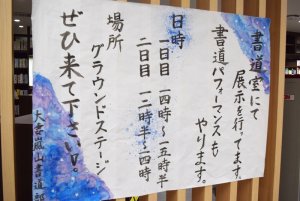 書道室にて
展示を行ってます。
書道パフォーマンスも
やります。
日時
一日目 一四時~一五時半
二日目 一二時半~一四時
場所
グラウンドステージ
ぜひ来て下さい!!
大妻嵐山書道部